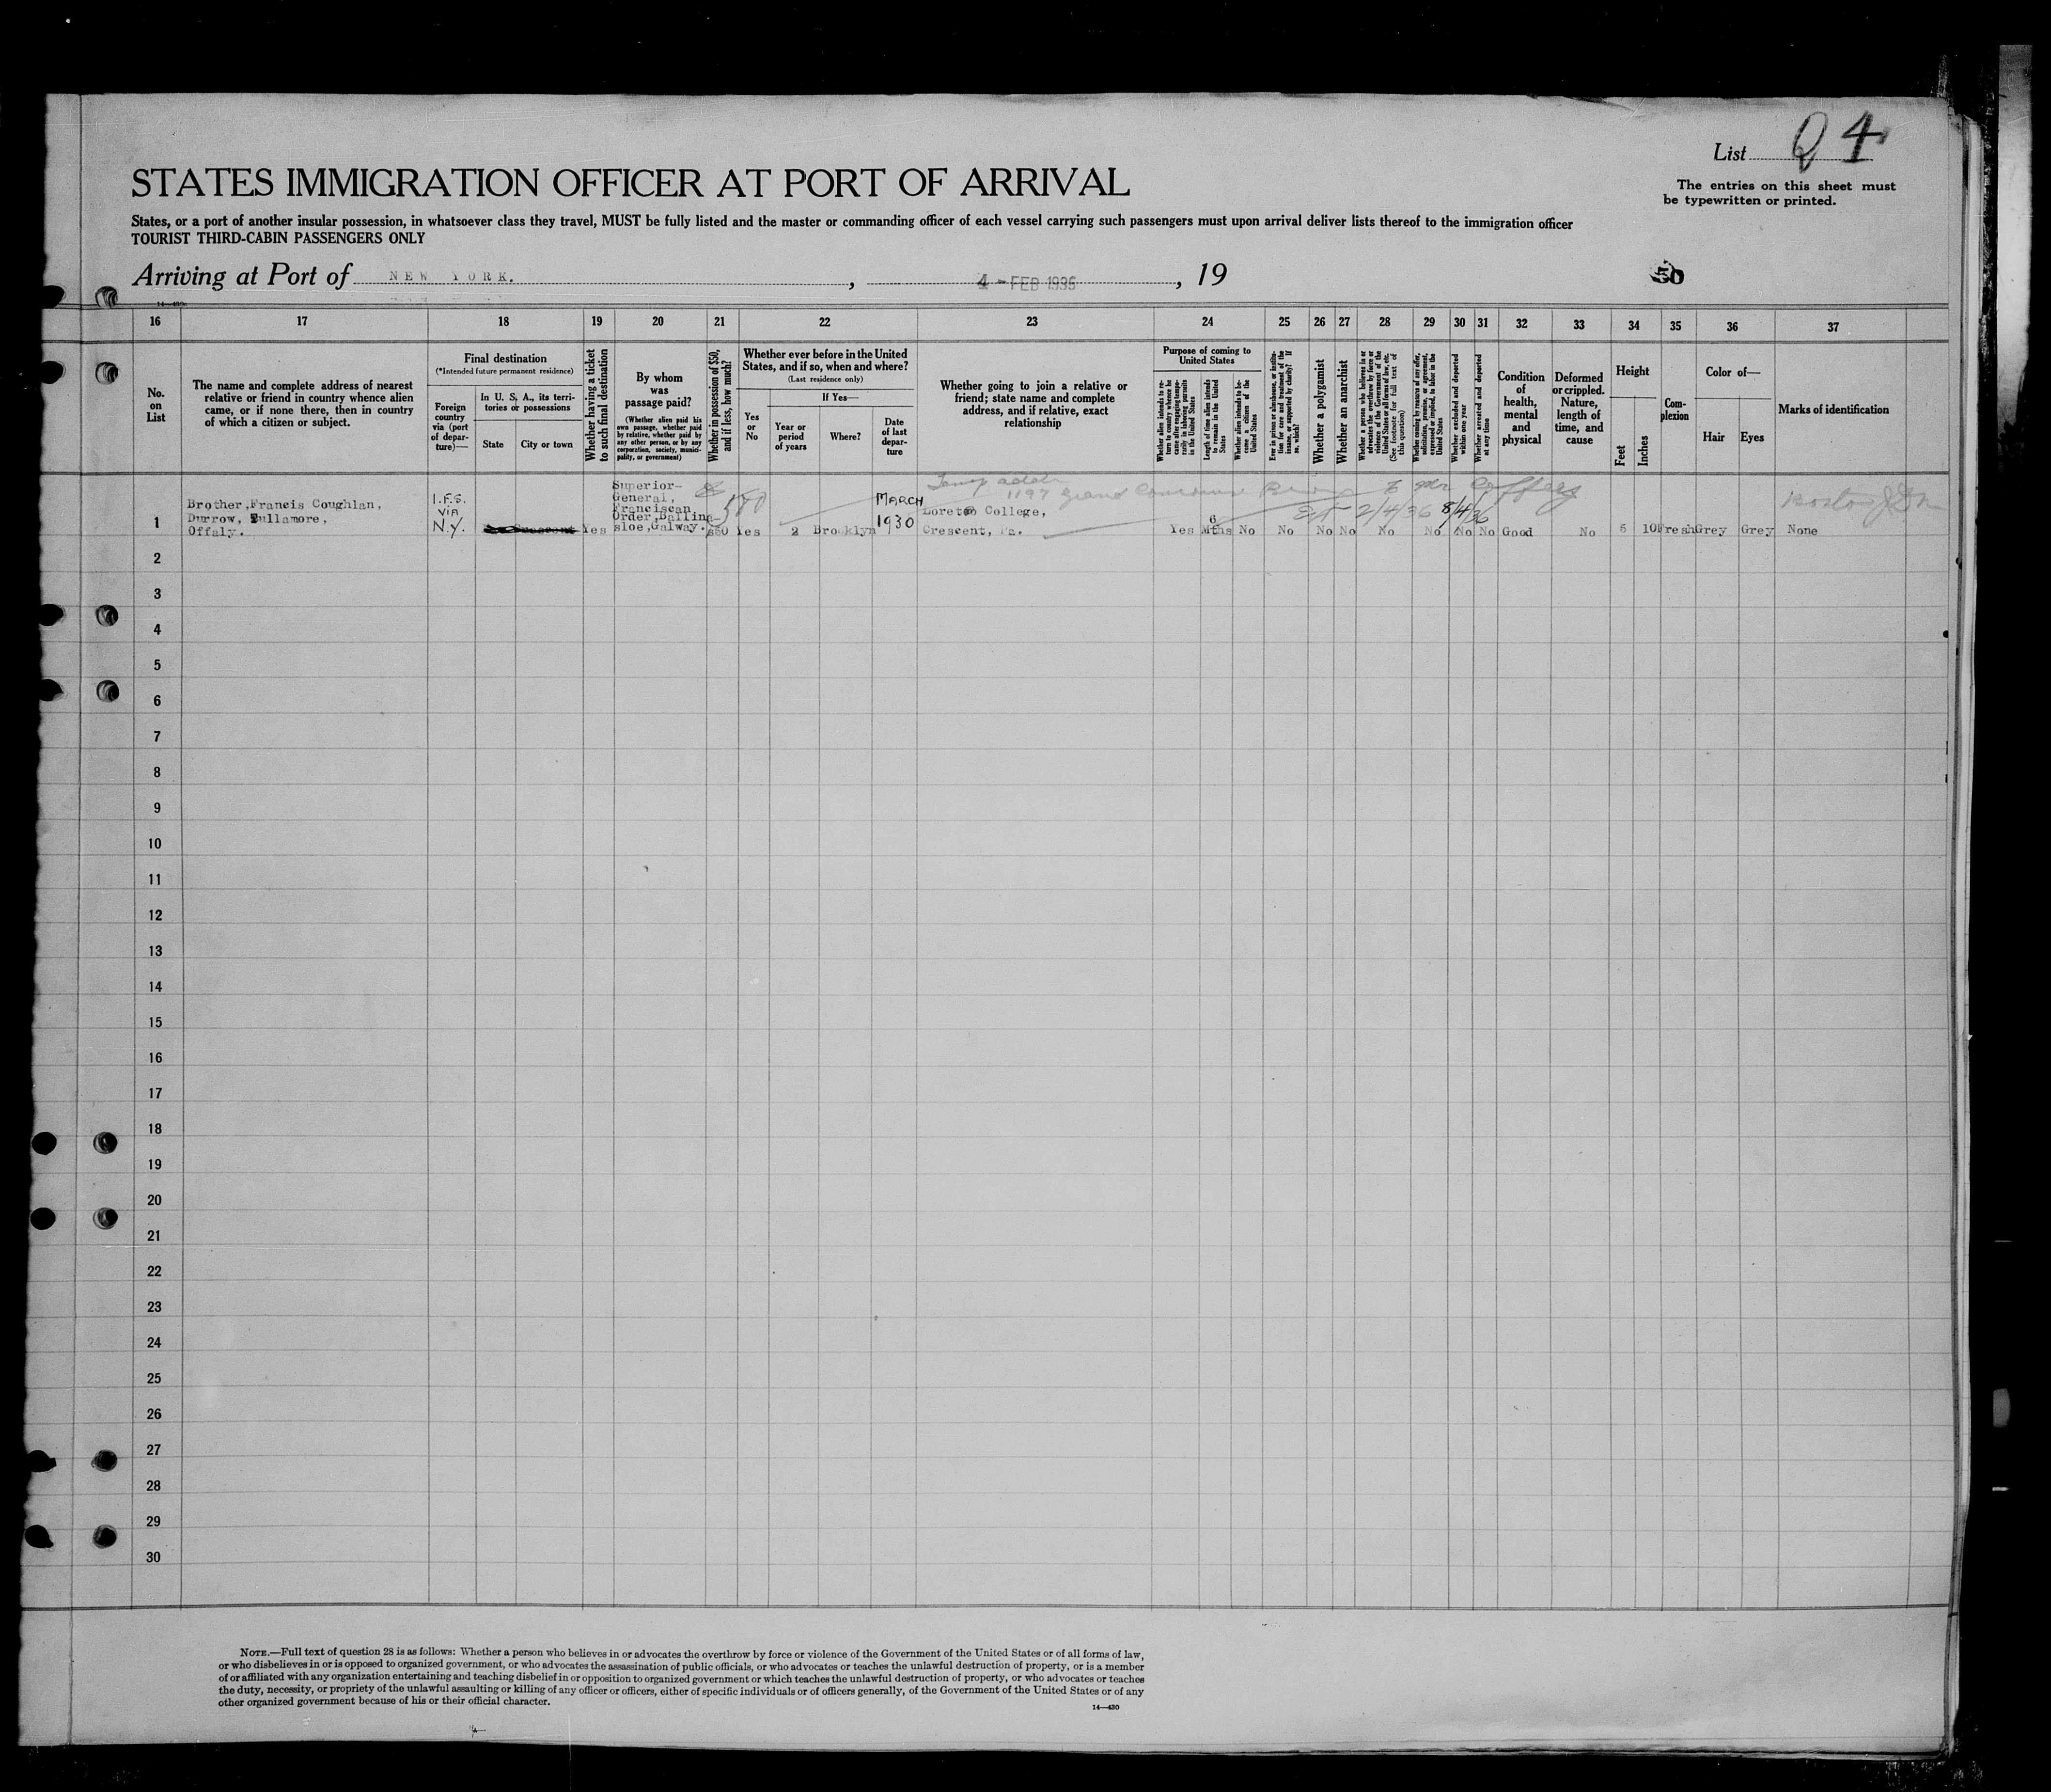 List Q 4
The entries on this sheet must
be typewritten or printed.
STATES IMMIGRATION OFFICER AT PORT OF ARRIVAL
States, or a port of another insular possession, in whatsoever class they travel, MUST be fully listed and the master or commanding officer of each vessel carrying such passengers must upon arrival deliver lists thereof to the immigration officer
TOURIST THIRD-CABIN PASSENGERS ONLY
Arriving at Port of NEW YORK. , 4 - FEB 1936 , 19
50
16 17 18 19 20 21 22 23 24 25 26 27 28 29 30 31 32 33 34 35 36 37
No.
on
List
The name and complete address of nearest
relative or friend in country whence alien
came, or if none there, then in country
of which a citizen or subject.
Final destination
(*Intended future permanent residence)
Foreign
country
via (port
of depar-
ture)—
In U. S. A., its terri-
tories or possessions
State
City or town
Whether having a ticket
to such final destination
By whom
was
passage paid?
(Whether alien paid his
own passage, whether paid
by relative, whether paid by
any other person, or by any
corporation, society, munici-
pality, or government)
Whether in possession of $50,
and if less, how much?
Whether ever before in the United
States, and if so, when and where?
(Last residence only)
Yes
or
No
If Yes—
Year or
period
of years
Where?
Date
of last
depar-
ture
Whether going to join a relative or
friend; state name and complete
address, and if relative, exact
relationship
Purpose of coming to
United States
Whether alien intends to re-
turn to country whence he
came after engaging tempo-
rarily in laboring pursuits
in the United States
Length of time alien intends
to remain in the United
States
Whether alien intends to be-
come a citizen of the
United States
Ever in prison or almshouse, or institu-
tion for care and treatment of the
insane, or supported by charity? If
so, which?
Whether a polygamist
Whether an anarchist
Whether a person who believes in or
advocates the overthrow by force or
violence of the Government of the
United States or all forms of law, etc.
(See footnote for full text of
this question)
Whether coming by reason of any offer,
solicitation, promise, or agreement,
expressed or implied, to labor in the
United States
Whether excluded and deported
within one year
Whether arrested and deported
at any time
Condition
of
health,
mental
and
physical
Deformed
or crippled.
Nature,
length of
time, and
cause
Height
Feet
Inches
Com-
plexion
Color of—
Hair
Eyes
Marks of identification
1
Brother, Francis Coughlan,
Durrow, Tullamore,
Offaly.
I.F.S.
VIA
N.Y.
Crescent
Yes
Superior-
General,
Franciscan
Order, Ballina-
sloe, Galway.
$50
Yes
2
Brooklyn
MARCH
1930
1197 Grand Concourse
Loreto College,
Crescent, Pa.
2/4/36 8/4/36
Yes
6
Mths
No No No No No No No No Good No 5 10 Fresh Grey Grey None
2
3
4
5
6
7
8
9
10
11
12
13
14
15
16
17
18
19
20
21
22
23
24
25
26
27
28
29
30
NOTE.—Full text of question 28 is as follows: Whether a person who believes in or advocates the overthrow by force or violence of the Government of the United States or of all forms of law,
or who disbelieves in or is opposed to organized government, or who advocates the assassination of public officials, or who advocates or teaches the unlawful destruction of property, or is a member
of or affiliated with any organization entertaining and teaching disbelief in or opposition to organized government or which teaches the unlawful destruction of property, or who advocates or teaches
the duty, necessity, or propriety of the unlawful assaulting or killing of any officer or officers, either of specific individuals or of officers generally, of the Government of the United States or of any
other organized government because of his or their official character.
14—430